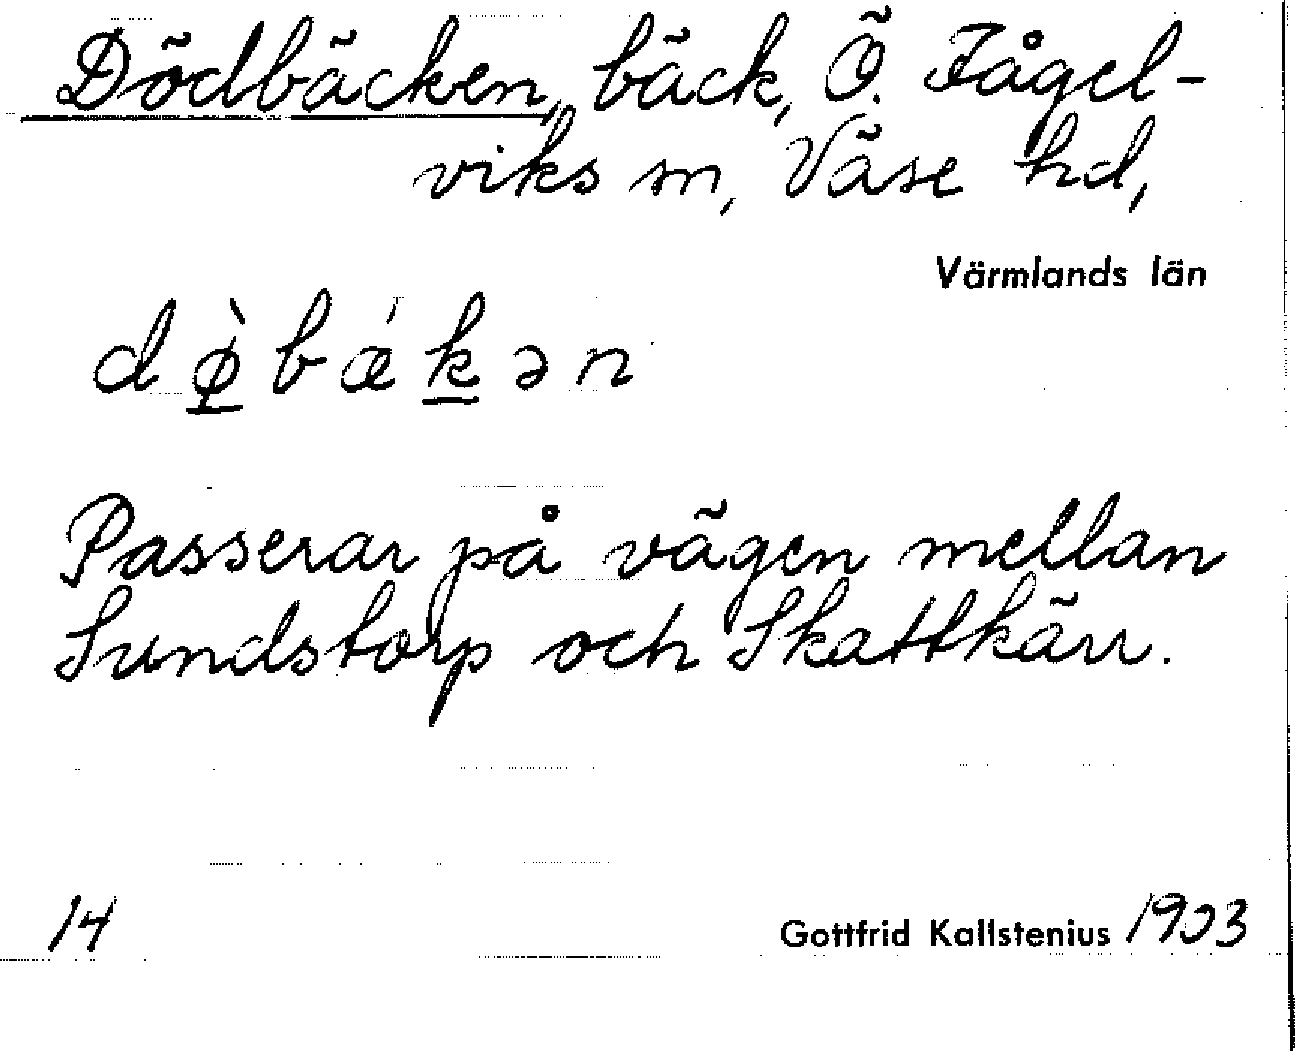 Dödbäcken, bäck, Ö. Fågel-
viks sn, Väse hd,
Värmlands län
dø̀bækən
Passerar på vägen mellan
Sundstorp och Skattkärr.
14
Gottfrid Kallstenius 1903